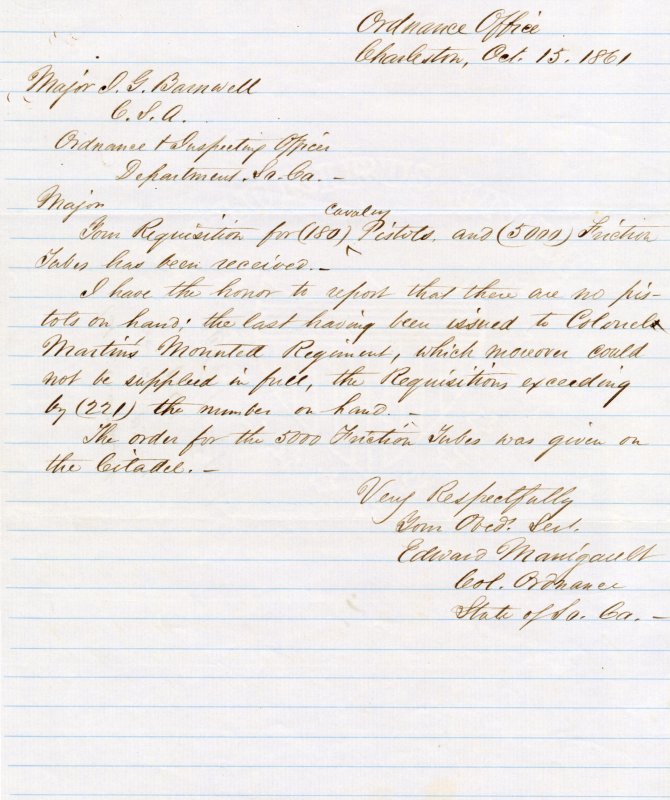 Ordnance Office
Charleston, Oct. 15. 1861
Major J. G. Barnwell
C. S. A.
Ordnance & Inspecting Officer
Department. So. Ca. –
Major
Your Requisition for (180) cavalry Pistols. and (5000) Friction
Tubes has been received. –
I have the honor to report that there are no pis-
tols on hand; the last having been issued to Colonel
Martin's Mounted Regiment, which moreover could
not be supplied in full, the Requisitions exceeding
by (221) the number on hand. –
The order for the 5000 Friction Tubes was given on
the Citadel. –
Very Respectfully
Your Obed. Sevt.
Edward Manigault
Col. Ordnance
State of So. Ca. –